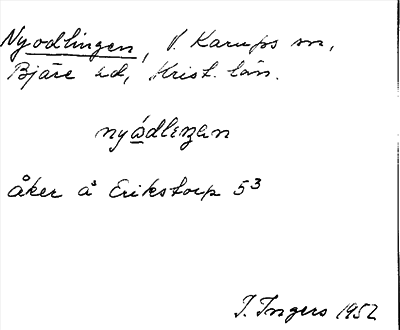 Nyodlingen, V. Karups sn,
Bjäre hd, Krist. län.
nyådleŋan
åker å Erikstorp 5³
I. Ingers 1952